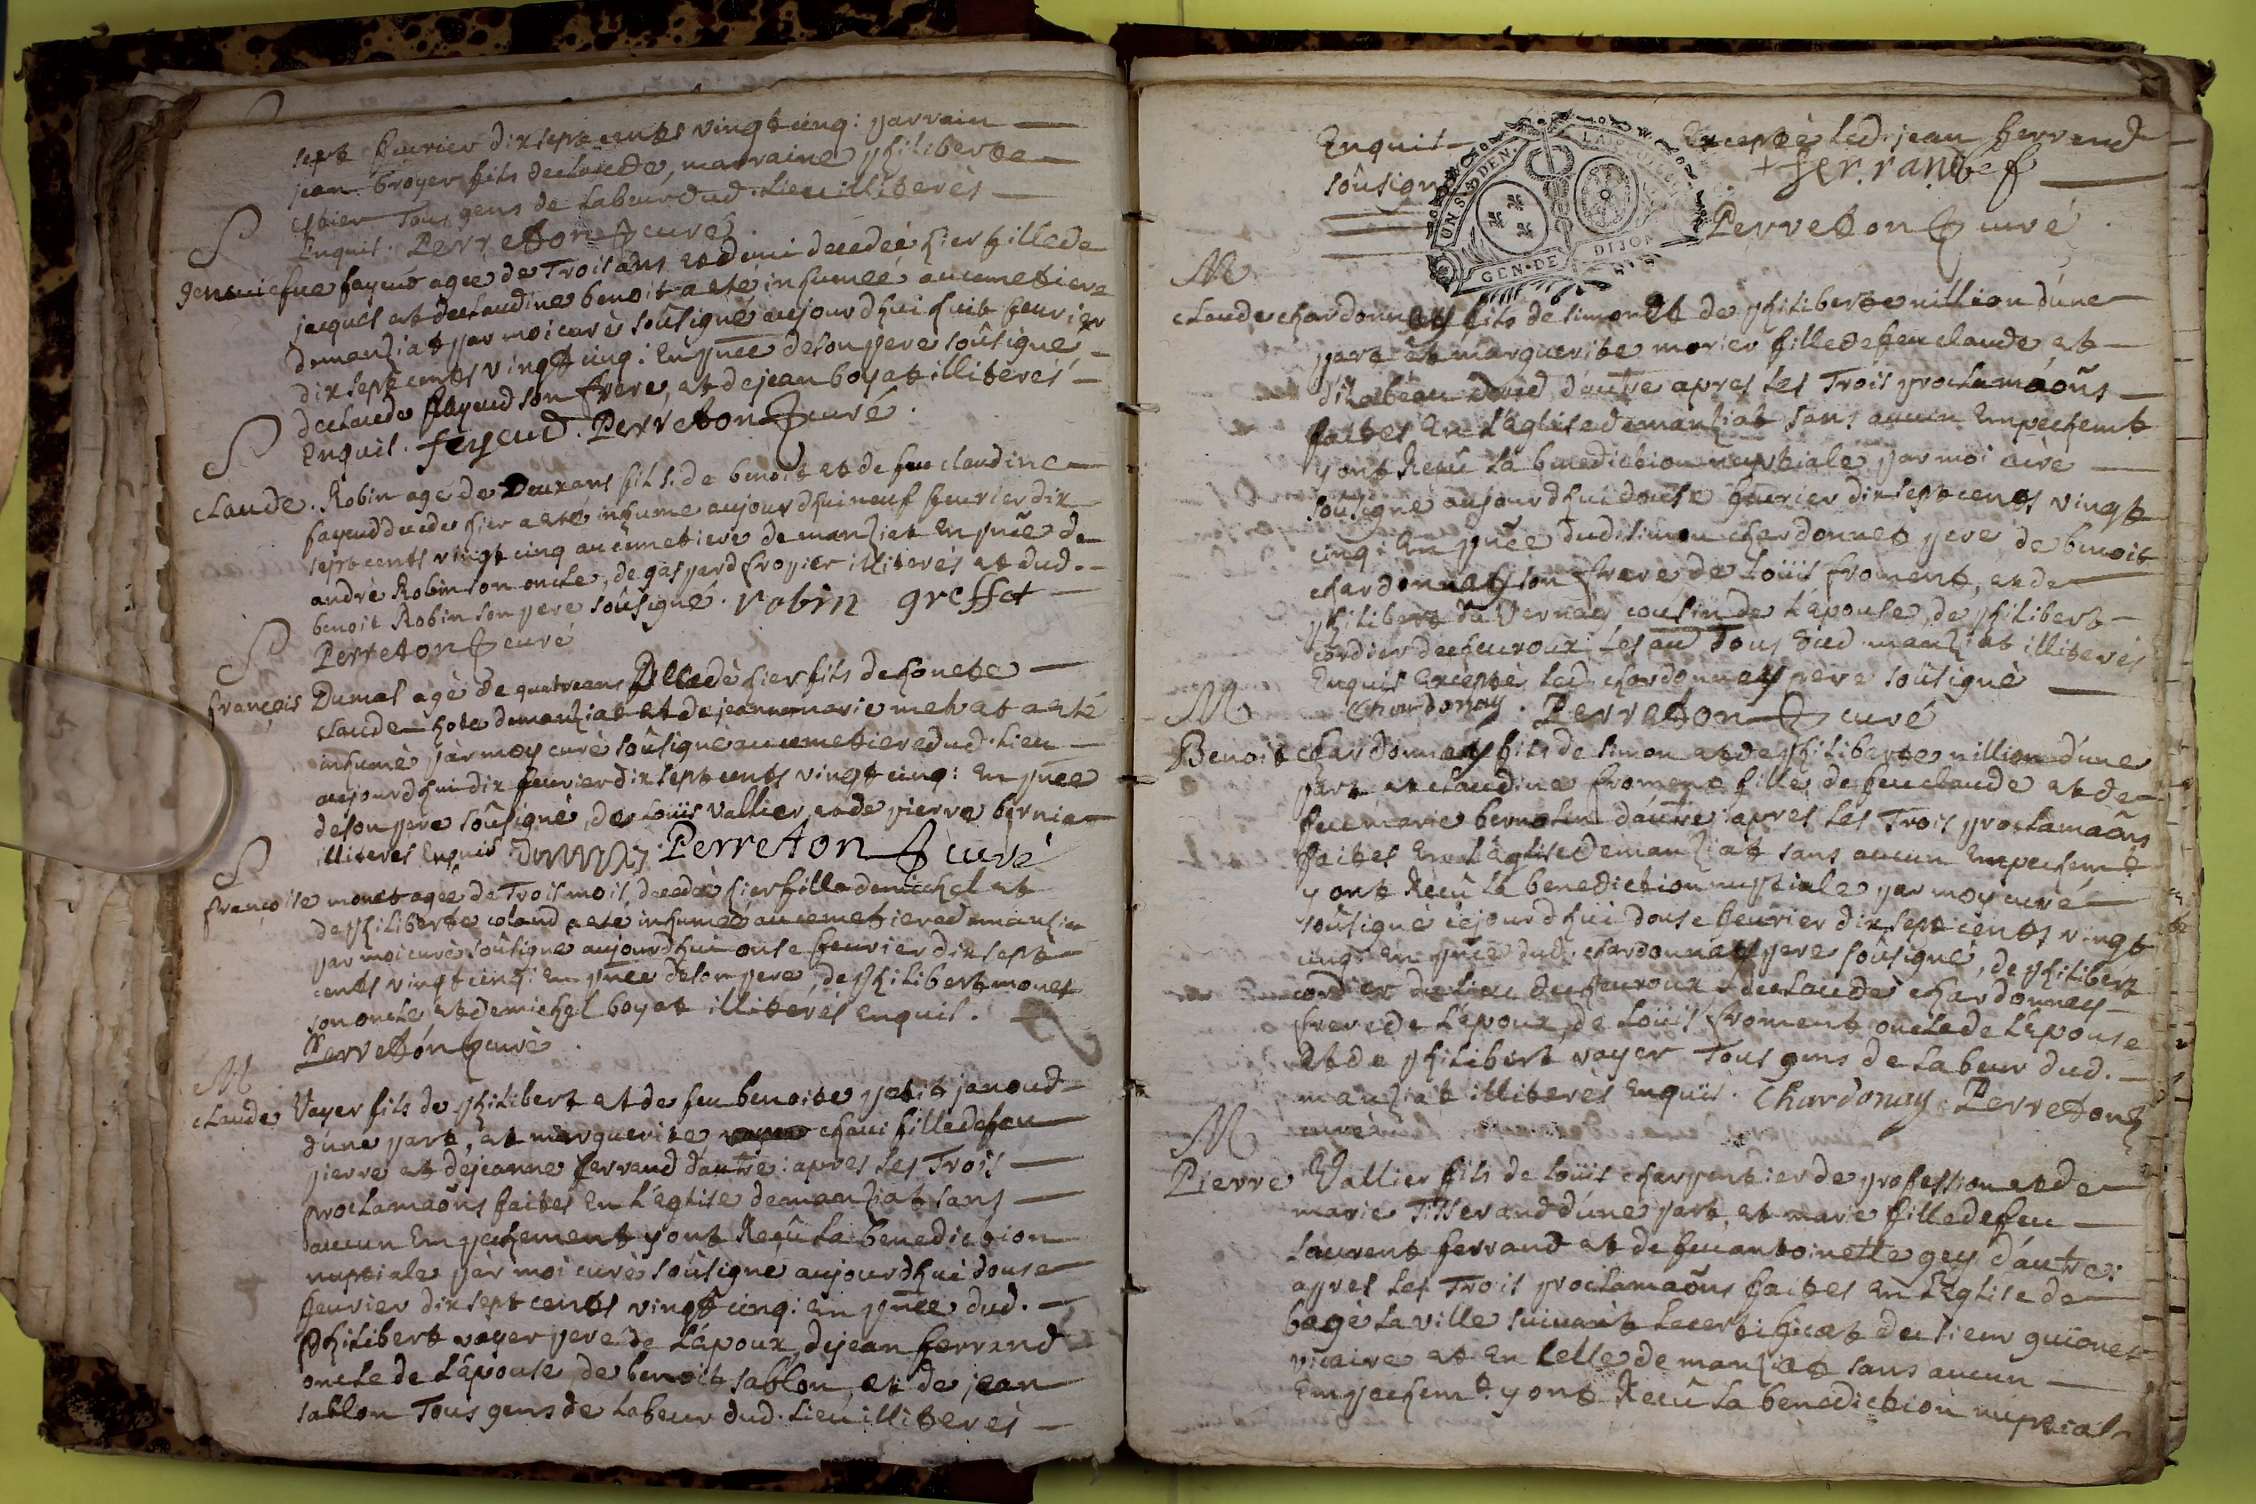 sept feurier dix sept cents vingt cinq : parrain
jean broyer fils de claude, marraine philiberte
tous gens de labeur dud. lieu illiterés
Enquis. Perreton curé
S
geneuiefue fayeud agee de Trois ans et demi decedeé hier fille de
jacques et de claudine benoit a eté inhumeé au cimetiere
de manziat par moi curé soûsigné aujourdhui huit feurier
dix sept cents vingt cinq : En pñce de son pere soûsigné,
de claude fayeud son frere, et de jean boyat illiterés
Enquis. feyeud. Perreton curé.
S
claude. Robin agé de Deux ans fils de benoit et de feu claudine
fayeud decede hier a eté inhume aujourdhui neuf feurier dix
sept cents vingt cinq au cimetiere de manziat En pñce de
andré Robin son oncle, de gaspard froyier illiterés et dud.
benoit Robin son pere soûsigné. robin greffet
Perreton curé
S
françois Dumas agé de quatre ans decedé hier fils de honete
claude hote de manziat et de jeanne marie mehat a eté
inhumé par moy curé soûsigne au cimetiere dud. lieu
aujourdhui dix feurier dix sept cents vingt cinq : En pñce
de son pere soûsigné, de Loüis Vallier, et de pierre bernia
illiteres Enquis. Perreton curé
S
françoise monet ageé de Trois mois, decedeé hier fille de michel et
de philiberte coland a eté inhumeé au cimetiere de manzia
par moi curé soûsigne aujourdhui onse feurier dix sept
cents vingt cinq : En pñce de son pere, de philibert monet
son oncle et de michel boyat illiterés Enquis.
Perreton curé.
M
claude Voyer fils de philibert et de feu benoite petit janoud
d'une part, et marguerite chaui fille de feu
pierre et de jeanne ferrand d'autre : apres les Trois
proclamaõns faites En L'Eglise de manziat sans
aucun Empechement y ont Reçû la benediction
nuptiale par moi curé soûsigne aujourdhui douse
feurier dix sept cents vingt cinq : En pñce dud.
philibert voyer pere de L'époux, de jean ferrand
oncle de L'épouse, de benoit sablon, et de jean
sablon Tous gens de labeur dud. Lieu illiterés
Enquis Excepté led. jean ferrand
soûsigné + ferrand
Perreton curé
UN S. 8 DEN.
GEN. DE DIJON
M
claude chardonnay fils de simon Et de philiberte nillion d'une
part et marguerite morier fille de feu claude et
d'isabeau d'autre apres les Trois proclamaõns
faites En L'Eglise de manziat sans aucun Empechemt.
y ont Reçû La benediction nuptiale par moi curé
soûsigne aujourdhui douse feurier dix sept cents vingt
cinq : En pñce dud. simon chardonnet pere de benoit
chardonnay son frere de Loüis froment, et de
philibert du Vernay cousin de L'epouse, de philibert
cordier de feuroux Tous dud. manziat illiterés
Enquis Excepté led. chardonnay pere soûsigné
Chardonay. Perreton curé
M
Benoit chardonnay fils de simon et de philiberte nillion d'une
part et claudine froment fille de feu claude et de
feue marie bernolin d'autre apres les Trois proclamaõns
faites En L'Eglise de manziat sans aucun Empechemt
y ont Reçû la benediction nuptiale par moy curé
soûsigne cejourdhui douse feurier dix sept cents vingt
cinq : En pñce dud. chardonnay pere soûsigné, de philibert
cordier du lieu de feuroux de claude chardonnay
frere de L'epoux, de Loüis froment oncle de L'epouse
et de philibert voyer Tous gens de labeur dud.
manziat illiteres Enquis. Chardonay. Perreton
curé
M
Pierre Vallier fils de Loüis charpentier de profession et de
marie Tisserand d'une part, et marie fille de feu
Laurent ferrand et de feu antoinette gey d'autre :
apres les Trois proclamaõns faites En L'Eglise de
bagé La ville suiuant le certificat du sieur guionet
vicaire et En celle de manziat sans aucun
Empechemt. y ont Recû la benediction nuptial